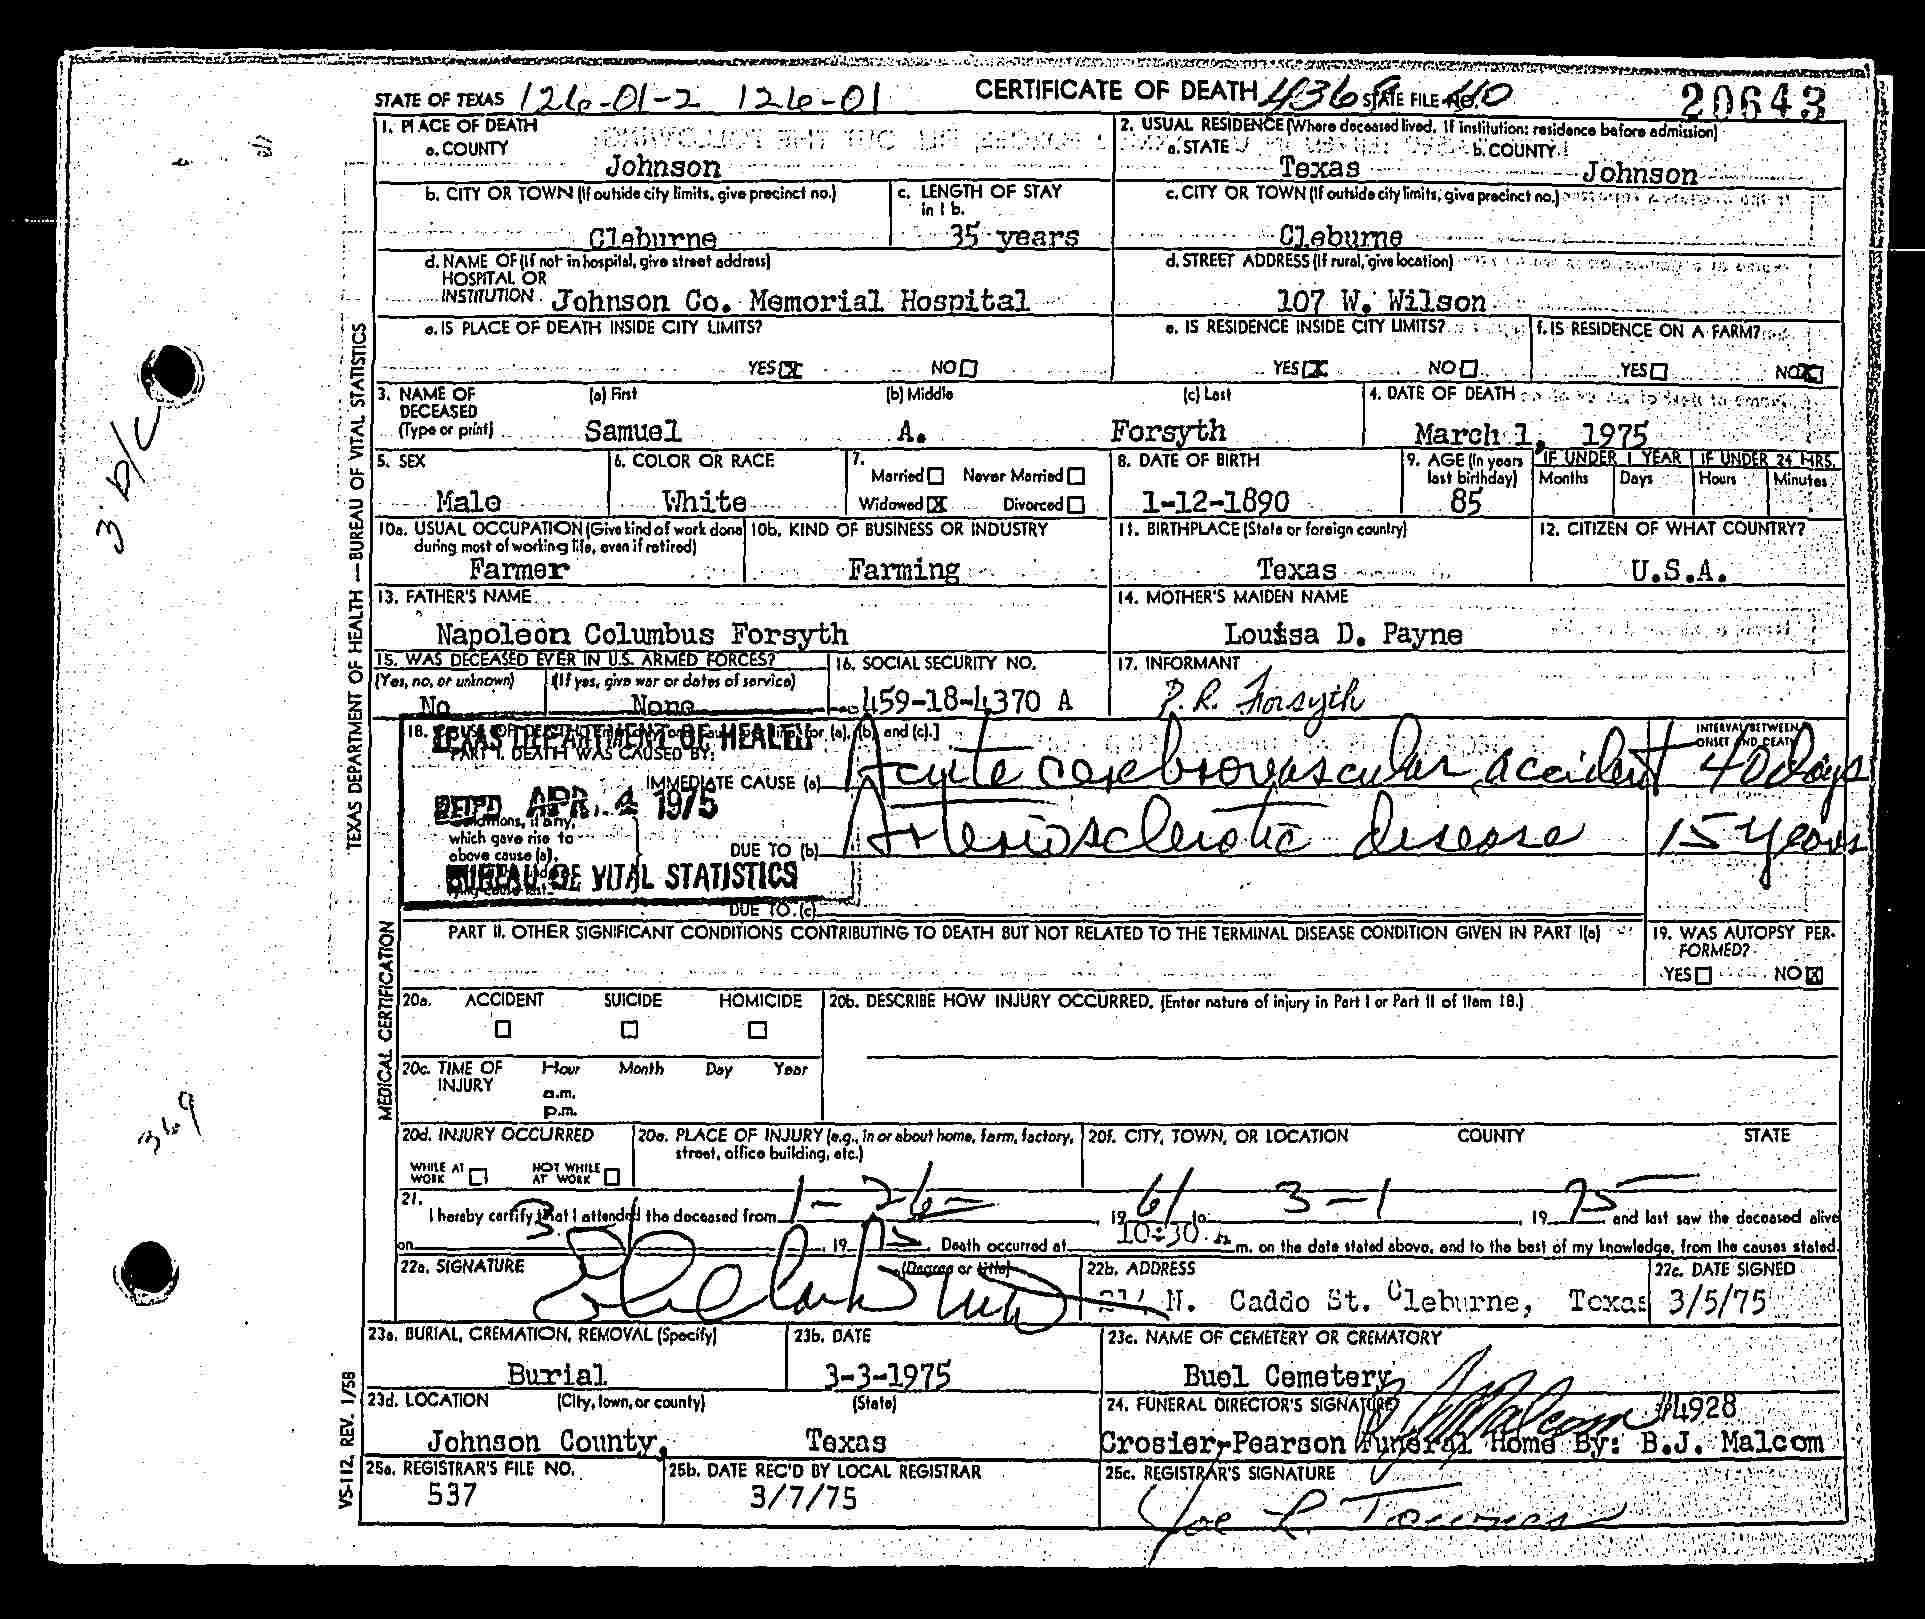 STATE OF TEXAS 126-01-2 126-01 CERTIFICATE OF DEATH 4368 STATE FILE NO. 40 20643
1. PLACE OF DEATH
a. COUNTY
Johnson
2. USUAL RESIDENCE (Where deceased lived. If institution: residence before admission)
a. STATE b. COUNTY
Texas Johnson
b. CITY OR TOWN (If outside city limits, give precinct no.)
Cleburne
c. LENGTH OF STAY in 1 b.
35 years
c. CITY OR TOWN (If outside city limits, give precinct no.)
Cleburne
d. NAME OF (If not in hospital, give street address)
HOSPITAL OR
INSTITUTION Johnson Co. Memorial Hospital
d. STREET ADDRESS (If rural, give location)
107 W. Wilson
e. IS PLACE OF DEATH INSIDE CITY LIMITS?
YES X NO
e. IS RESIDENCE INSIDE CITY LIMITS?
YES X NO
f. IS RESIDENCE ON A FARM?
YES NO X
3. NAME OF DECEASED (Type or print)
(a) First (b) Middle (c) Last
Samuel A. Forsyth
4. DATE OF DEATH
March 1, 1975
5. SEX
Male
6. COLOR OR RACE
White
7.
Married Never Married
Widowed X Divorced
8. DATE OF BIRTH
1-12-1890
9. AGE (In years last birthday)
85
IF UNDER 1 YEAR IF UNDER 24 HRS.
Months Days Hours Minutes
10a. USUAL OCCUPATION (Give kind of work done during most of working life, even if retired)
Farmer
10b. KIND OF BUSINESS OR INDUSTRY
Farming
11. BIRTHPLACE (State or foreign country)
Texas
12. CITIZEN OF WHAT COUNTRY?
U.S.A.
13. FATHER'S NAME
Napoleon Columbus Forsyth
14. MOTHER'S MAIDEN NAME
Louisa D. Payne
15. WAS DECEASED EVER IN U.S. ARMED FORCES?
(Yes, no, or unknown) (If yes, give war or dates of service)
No None
16. SOCIAL SECURITY NO.
459-18-4370 A
17. INFORMANT
P.R. Forsyth
18.
TEXAS DEPARTMENT OF HEALTH
for (a), (b), and (c).]
PART I. DEATH WAS CAUSED BY:
IMMEDIATE CAUSE (a) Acute cerebrovascular accident
INTERVAL BETWEEN ONSET AND DEATH
40 days
REC'D APR. 4 1975
Conditions, if any, which gave rise to above cause (a),
DUE TO (b) Arteriosclerotic disease 15 years
BUREAU OF VITAL STATISTICS
DUE TO (c)
PART II. OTHER SIGNIFICANT CONDITIONS CONTRIBUTING TO DEATH BUT NOT RELATED TO THE TERMINAL DISEASE CONDITION GIVEN IN PART I(a)
19. WAS AUTOPSY PERFORMED?
YES NO X
20a. ACCIDENT SUICIDE HOMICIDE
20b. DESCRIBE HOW INJURY OCCURRED. (Enter nature of injury in Part I or Part II of item 18.)
20c. TIME OF INJURY Hour Month Day Year
a.m.
p.m.
20d. INJURY OCCURRED
WHILE AT WORK NOT WHILE AT WORK
20e. PLACE OF INJURY (e.g., in or about home, farm, factory, street, office building, etc.)
20f. CITY, TOWN, OR LOCATION COUNTY STATE
21.
I hereby certify that I attended the deceased from 1-26- 1961 to 3-1 1975 and last saw the deceased alive
on 3-1, 1975. Death occurred at 10:30 m. on the date stated above, and to the best of my knowledge, from the causes stated.
22a. SIGNATURE (Degree or title)
22b. ADDRESS
N. Caddo St. Cleburne, Texas
22c. DATE SIGNED
3/5/75
23a. BURIAL, CREMATION, REMOVAL (Specify)
Burial
23b. DATE
3-3-1975
23c. NAME OF CEMETERY OR CREMATORY
Buel Cemetery
23d. LOCATION (City, town, or county) (State)
Johnson County, Texas
24. FUNERAL DIRECTOR'S SIGNATURE
#4928
Crosier-Pearson Funeral Home By: B.J. Malcom
25a. REGISTRAR'S FILE NO.
537
25b. DATE REC'D BY LOCAL REGISTRAR
3/7/75
25c. REGISTRAR'S SIGNATURE
Joe L. Townes
TEXAS DEPARTMENT OF HEALTH — BUREAU OF VITAL STATISTICS
MEDICAL CERTIFICATION
VS-112, REV. 1/58
369